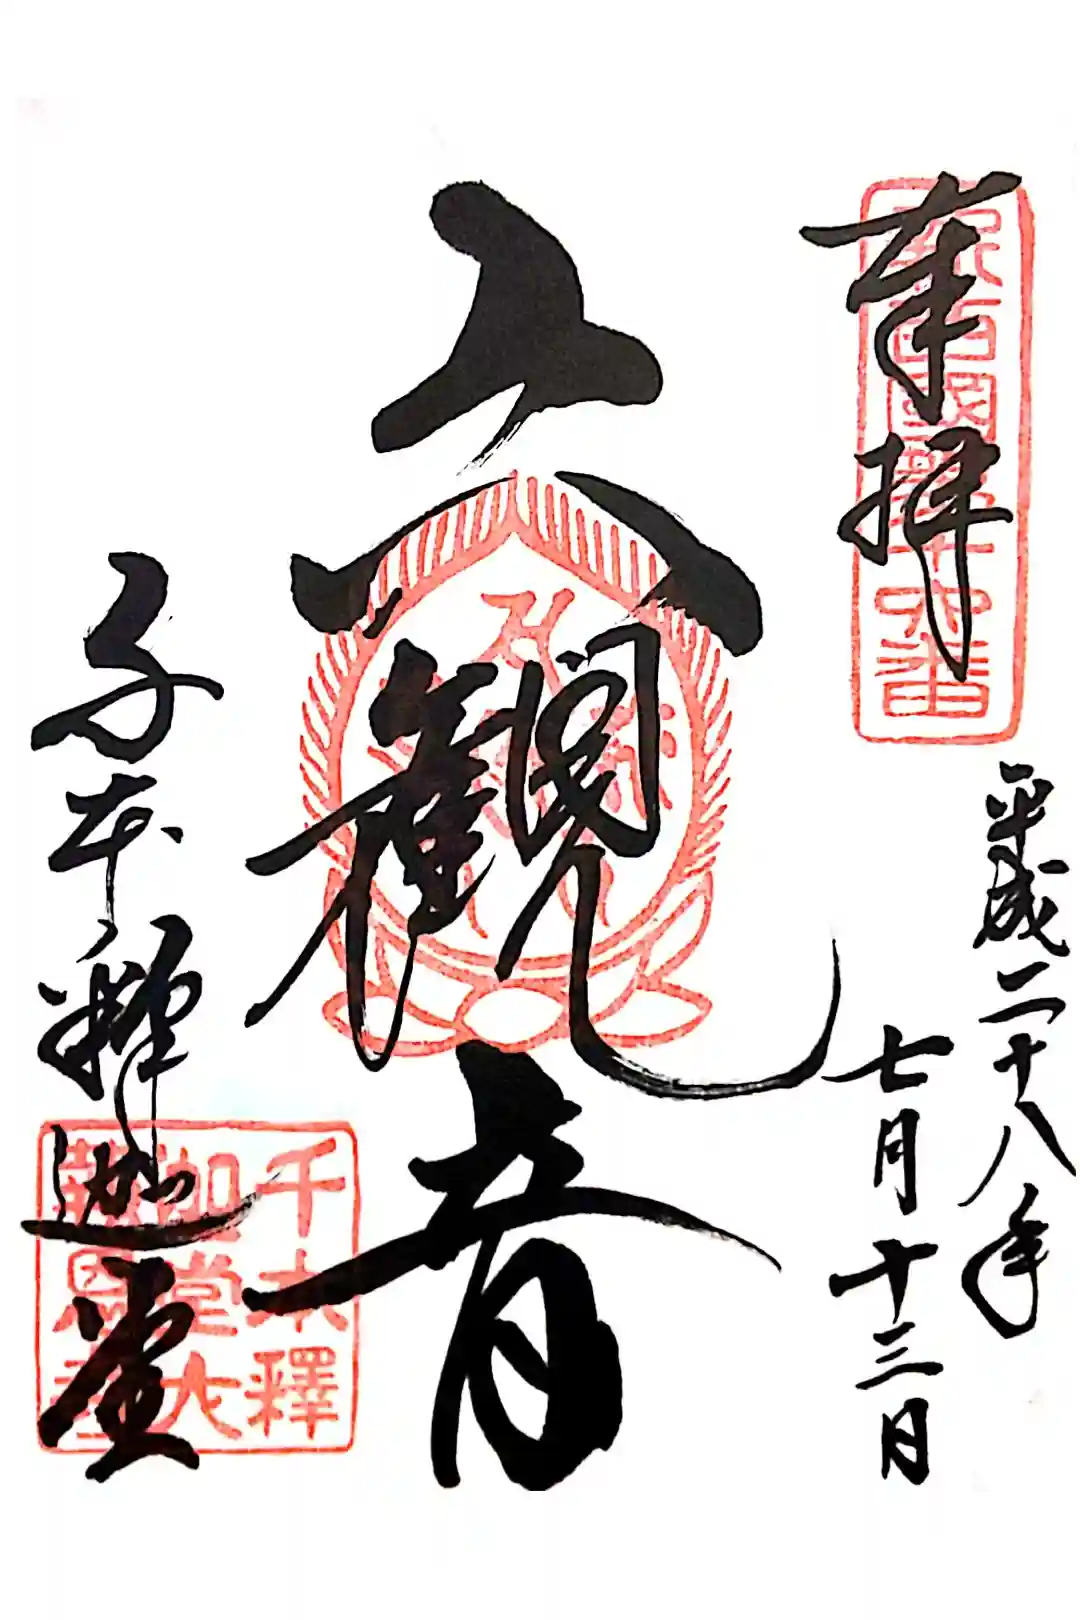 奉拝
平成二十八年
七月十三日
六観音
千本釋迦堂
新西國第十六番
千本釋
迦堂大
報恩寺